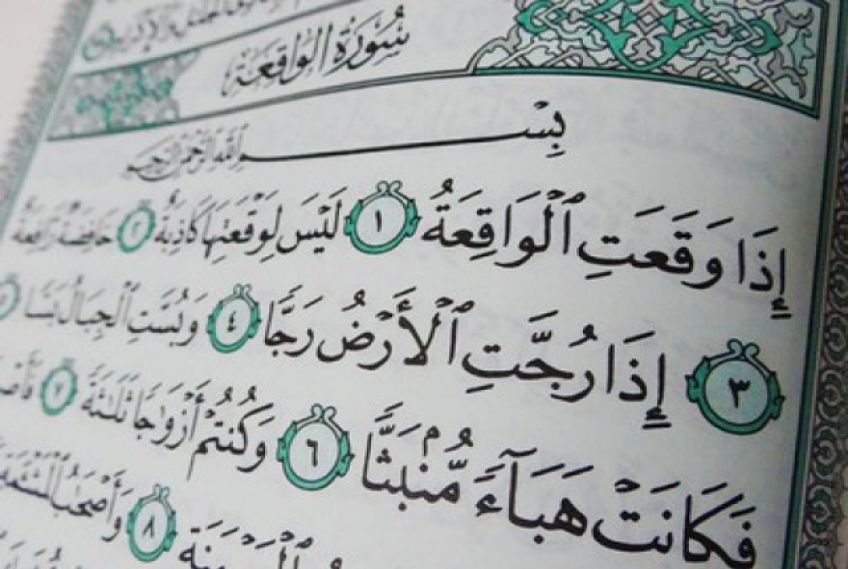 سُورَةُ الوَاقِعَةِ
بِسْمِ اللَّهِ الرَّحْمَٰنِ الرَّحِيمِ
إِذَا وَقَعَتِ ٱلْوَاقِعَةُ ١ لَيْسَ لِوَقْعَتِهَا كَاذِبَةٌ ٢ خَافِضَةٌ رَّافِعَةٌ
٣ إِذَا رُجَّتِ ٱلْأَرْضُ رَجًّا ٤ وَبُسَّتِ ٱلْجِبَالُ بَسًّا ٥
فَكَانَتْ هَبَآءً مُّنۢبَثًّا ٦ وَكُنتُمْ أَزْوَٰجًا ثَلَٰثَةً ٧
٨ وَأَصْحَٰبُ